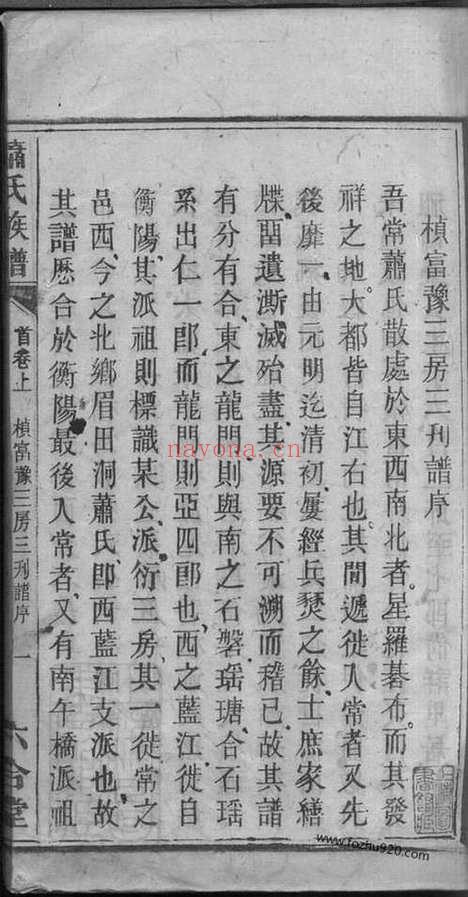 楨富豫三房三刊譜序
吾常蕭氏散處於東西南北者星羅碁布而其發
祥之地大都皆自江右也其間遞徙入常者又先
後靡一由元明迄清初屢經兵燹之餘士庶家繕
牒畱遺澌滅殆盡其源要不可溯而稽已故其譜
有分有合東之龍門則與南之石磐瑶瑭合石瑶
系出仁一郎而龍門則亞四郎也西之藍江徙自
衡陽其派祖則標識某公派衍三房其一徙常之
邑西今之北鄉眉田洞蕭氏即西藍江支派也故
其譜歷合於衡陽最後入常者又有南午橋派祖
蕭氏族譜
首卷上
楨富豫三房三刊譜序
一
六合堂
nayona.cn
www.fozhu920.com